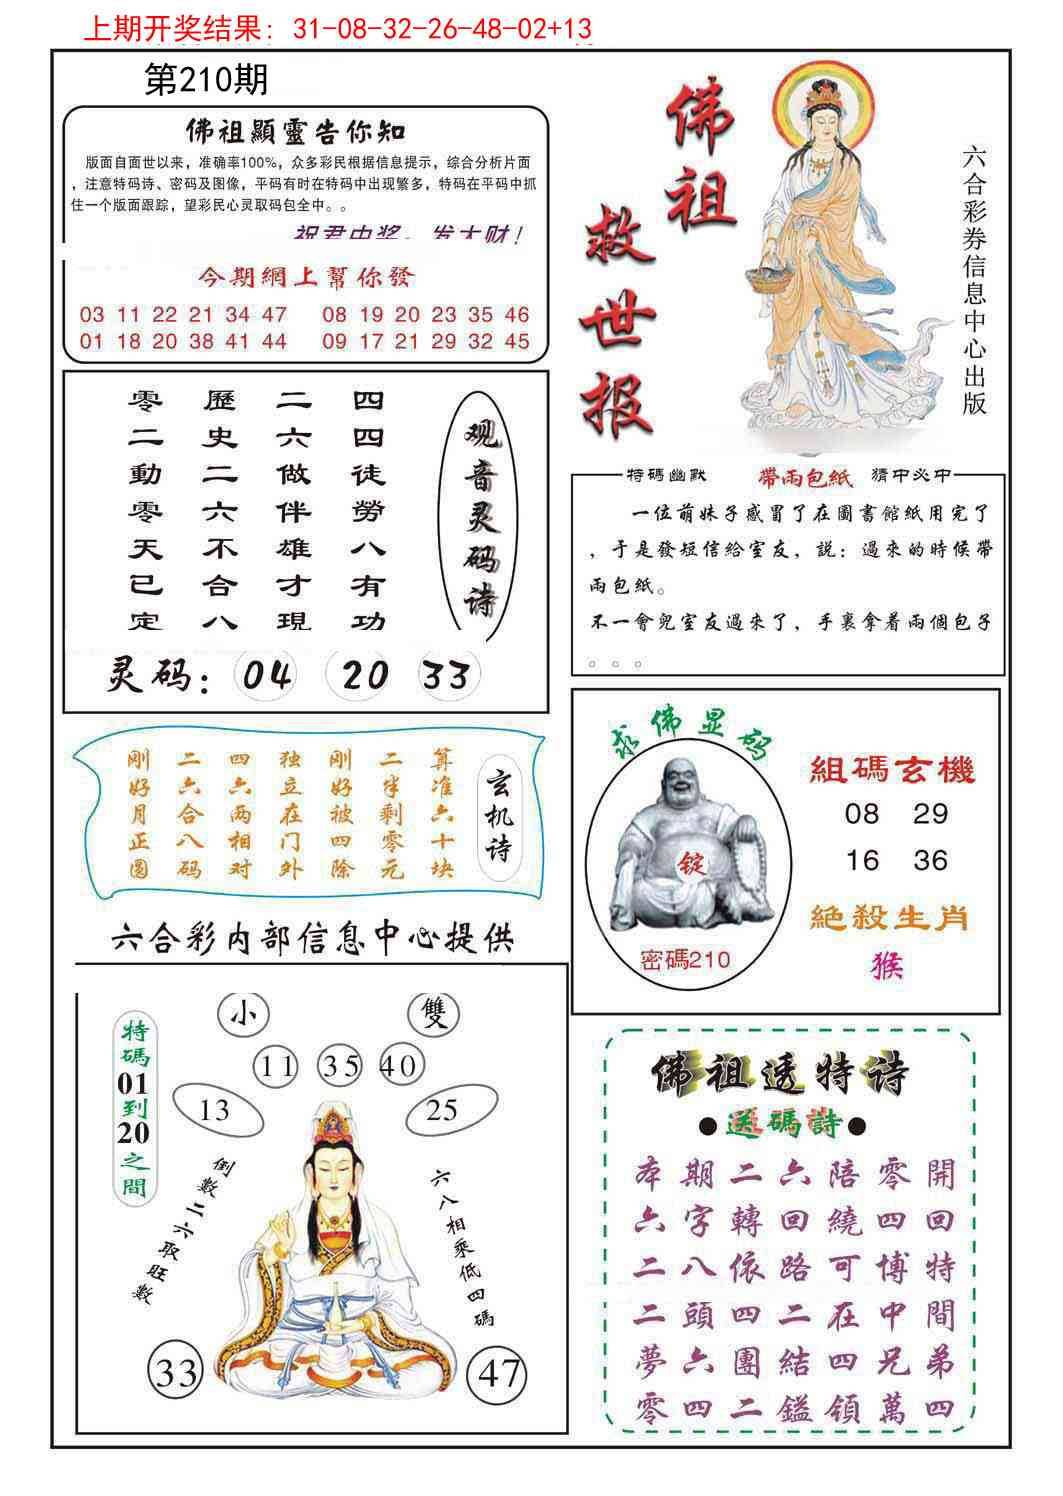 上期开奖结果: 31-08-32-26-48-02+13
第210期
佛祖顯靈告你知
版面自面世以来，准确率100%，众多彩民根据信息提示，综合分析片面
，注意特码诗、密码及图像，平码有时在特码中出现繁多，特码在平码中抓
住一个版面跟踪，望彩民心灵取码包全中。。
祝君中奖，发大财！
今期網上幫你發
03 11 22 21 34 47 08 19 20 23 35 46
01 18 20 38 41 44 09 17 21 29 32 45
佛祖
救世报
六合彩券信息中心出版
四四徒勞八有功
二六做伴雄才現
歷史二六不合八
零二動零天已定
观音灵码诗
灵码: 04 20 33
特碼幽默 帶兩包紙 猜中必中
一位萌妹子感冒了在圖書館紙用完了
，于是發短信給室友，説：過來的時候帶
兩包紙。
不一會兒室友過來了，手裏拿着兩個包子
。。。
玄机诗
算准六十块
二半剩零元
刚好被四除
独立在门外
四六两相对
二六合八码
刚好月正圆
求佛显码
锭
密碼210
組碼玄機
08 29
16 36
絕殺生肖
猴
六合彩内部信息中心提供
特碼01到20之間
小 雙
11 35 40
13 25
倒數二六取旺數
六八相乘低四碼
33 47
佛祖透特诗
●送碼詩●
本期二六陪零開
六字轉回繞四回
二八依路可博特
二頭四二在中間
夢六團結四兄弟
零四二鎰領萬四